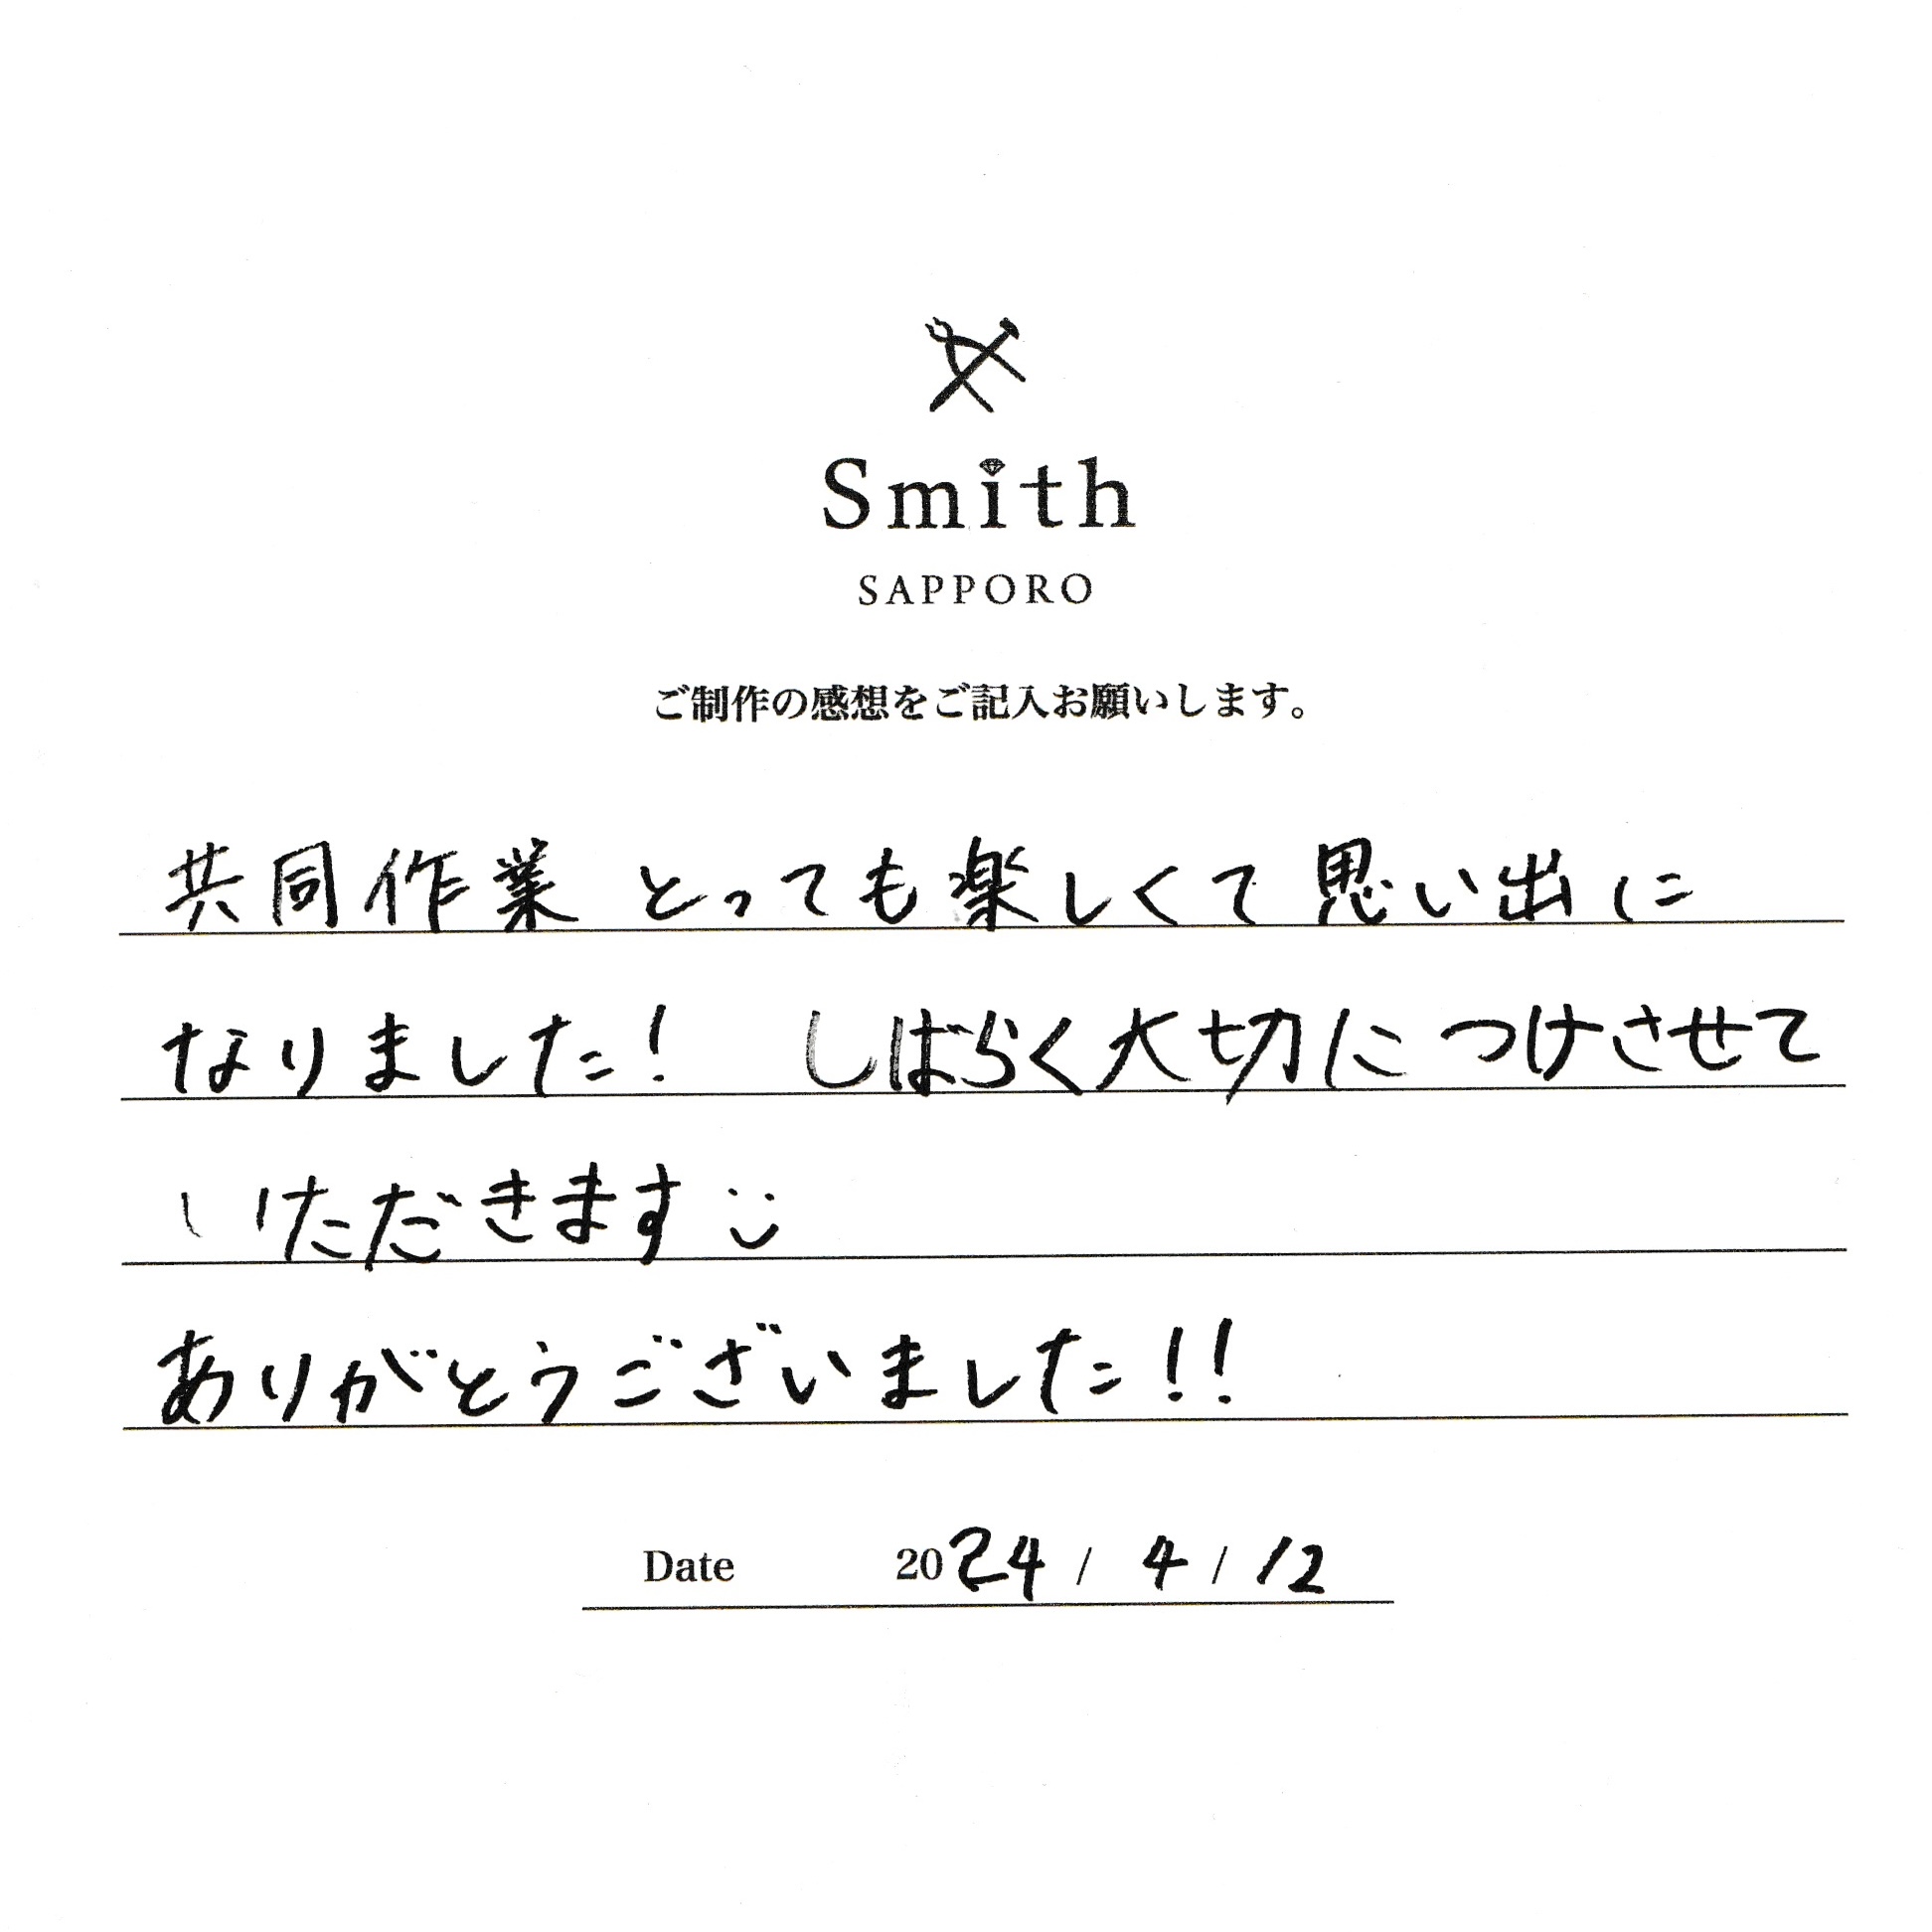 Smith
SAPPORO
ご制作の感想をご記入お願いします。
共同作業 とっても楽しくて思い出に
なりました! しばらく大切につけさせて
いただきます :)
ありがとうございました!!
Date 2024 / 4 / 12